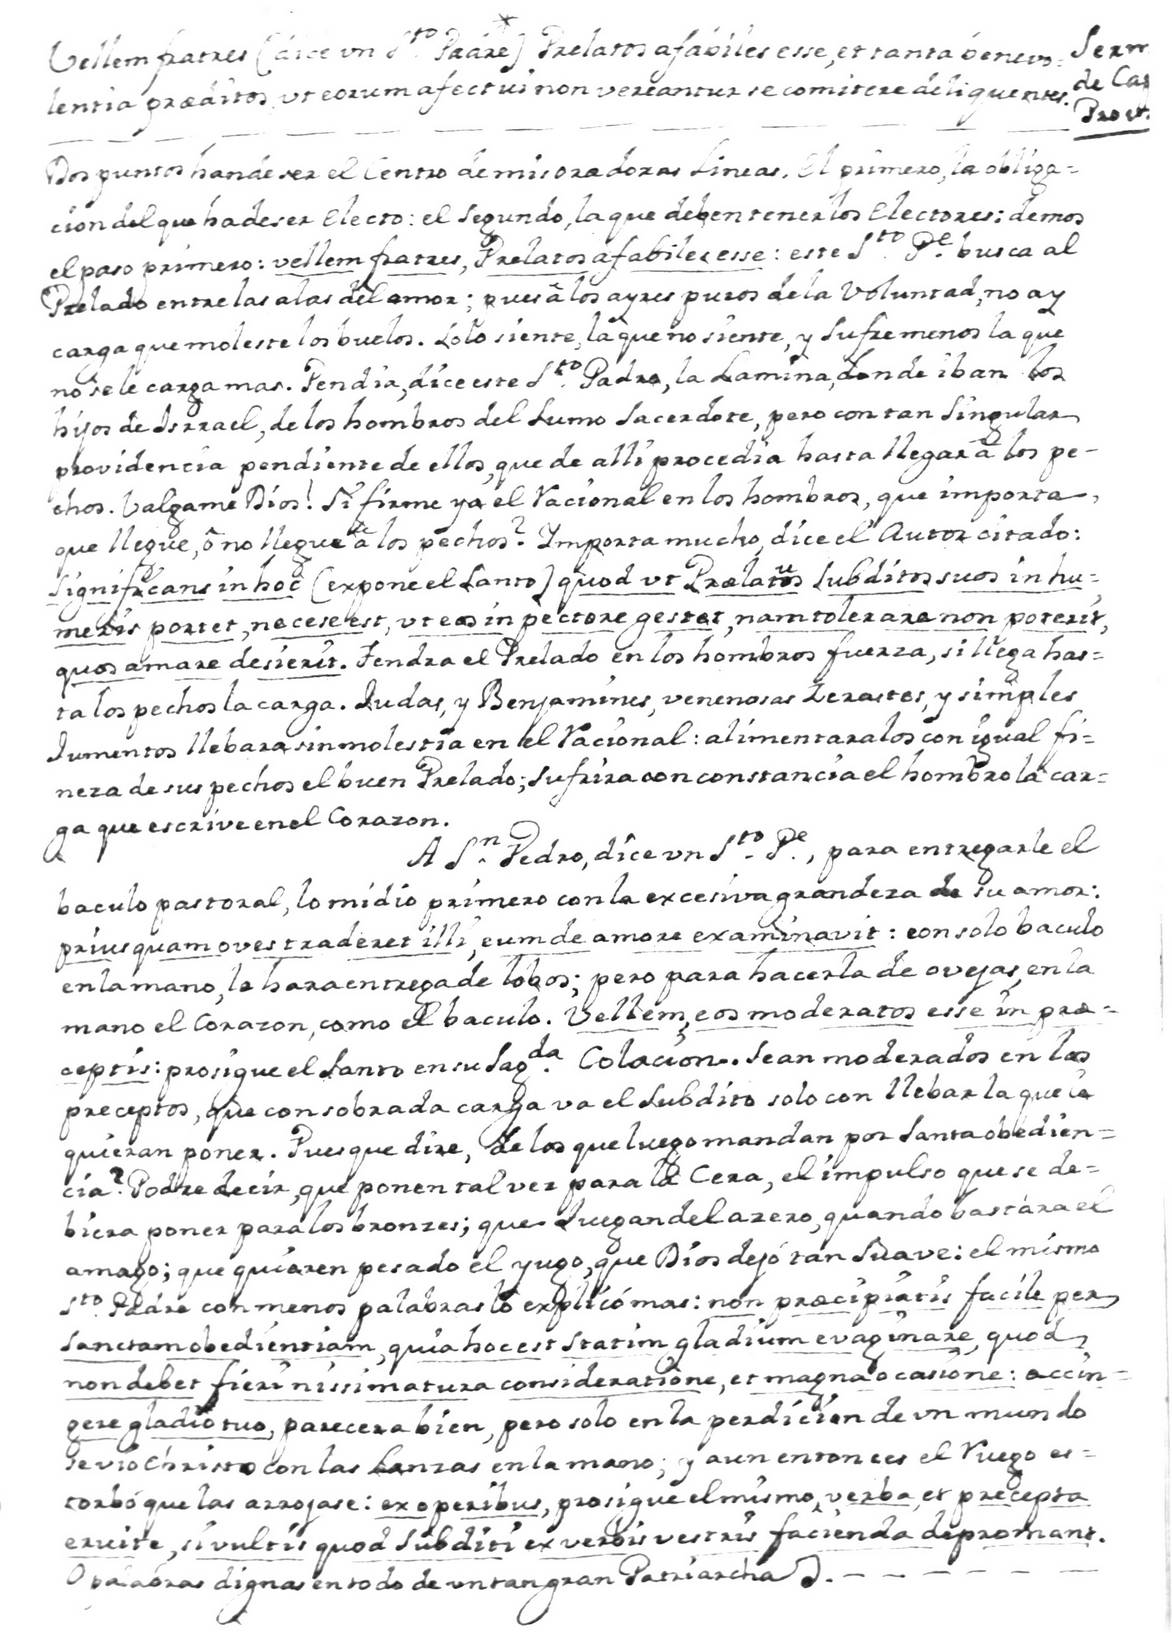 Vellem fratres (dice vn Sto. Padre) Prelatos afabiles esse, et tanta benevo-
lentia præditos, vt eorum afectui non vereantur se comitere deliquentes.
Serm
de Cap
Prov.
Dos puntos han de ser el Centro de mis oradoras Lineas. El primero, la obliga-
cion del que ha de ser Electo: el segundo, la que deben tener los Electores: demos
el paso primero: vellem fratres, Prelatos afabiles esse: este Sto. Pe. busca al
Prelado entre las alas del amor; pues â los ayres puros de la Voluntad, no ay
carga que moleste los buelos. Solo siente, la que no siente, y sufre menos la que
no se le carga mas. Pendia, dice este Sto. Padre, la Lamina, donde iban los
hijos de Isrrael, de los hombros del sumo Sacerdote, pero con tan singular
providencia pendiente de ellos, que de alli procedia hasta llegar â los pe-
chos. Valgame Dios! Si firme ya el Racional en los hombros, que importa,
que llegue, ô no llegue â los pechos? Importa mucho, dice el Autor citado:
significans in hoc (expone el Santo) quod vt Prælatus subditos suos in hu-
meris portet, necese est, vt eos in pectore gestet, nam tolerare non poterit,
quos amare desierit. Tendra el Prelado en los hombros fuerza, si llega has-
ta los pechos la carga. Judas, y Benjamines, venenosas Zerastes, y simples
Jumentos llebara sin molestia en el Racional: alimentaralos con igual fi-
neza de sus pechos el buen Prelado; sufrira con constancia el hombro la car-
ga que escrive en el Corazon.
A Sn. Pedro, dice vn Sto. Pe., para entregarle el
baculo pastoral, lo midio primero con la excesiva grandeza de su amor:
priusquam oves traderet illi, eum de amore examinavit: con solo baculo
en la mano, le hara entrega de lobos; pero para hacerla de ovejas, en la
mano el Corazon, como el baculo. Vellem, eos moderatos esse in præ-
ceptis: prosigue el Santo en su Sagda. Colacion. Sean moderados en los
preceptos, que con sobrada carga va el subdito solo con llebar la que le
quieran poner. Pues que dire, de los que luego mandan por Santa obedien-
cia? Podre decir, que ponen tal vez para la Cera, el impulso que se de-
biera poner para los bronzes; que Juegan del azero, quando bastára el
amago; que quieren pesado el yugo, que Dios dejó tan suave: el mismo
Sto. Padre con menos palabras lo explicó mas: non præcipiatis facile per
sanctam obedientiam, quia hoc est statim gladium evaginare, quod
non debet fieri nissi matura consideratione, et magna ocasione: accin-
gere gladio tuo, parecera bien, pero solo en la perdicion de vn mundo
se vio Christo con las Lanzas en la mano; y aun entonces el Ruego es-
torbó que las arrojase: ex operibus, prosigue el mismo, verba, et precepta
eruite, si vultis quod subditi ex verbis vestris facienda depromant.
O palabras dignas en todo de vn tan gran Patriarcha